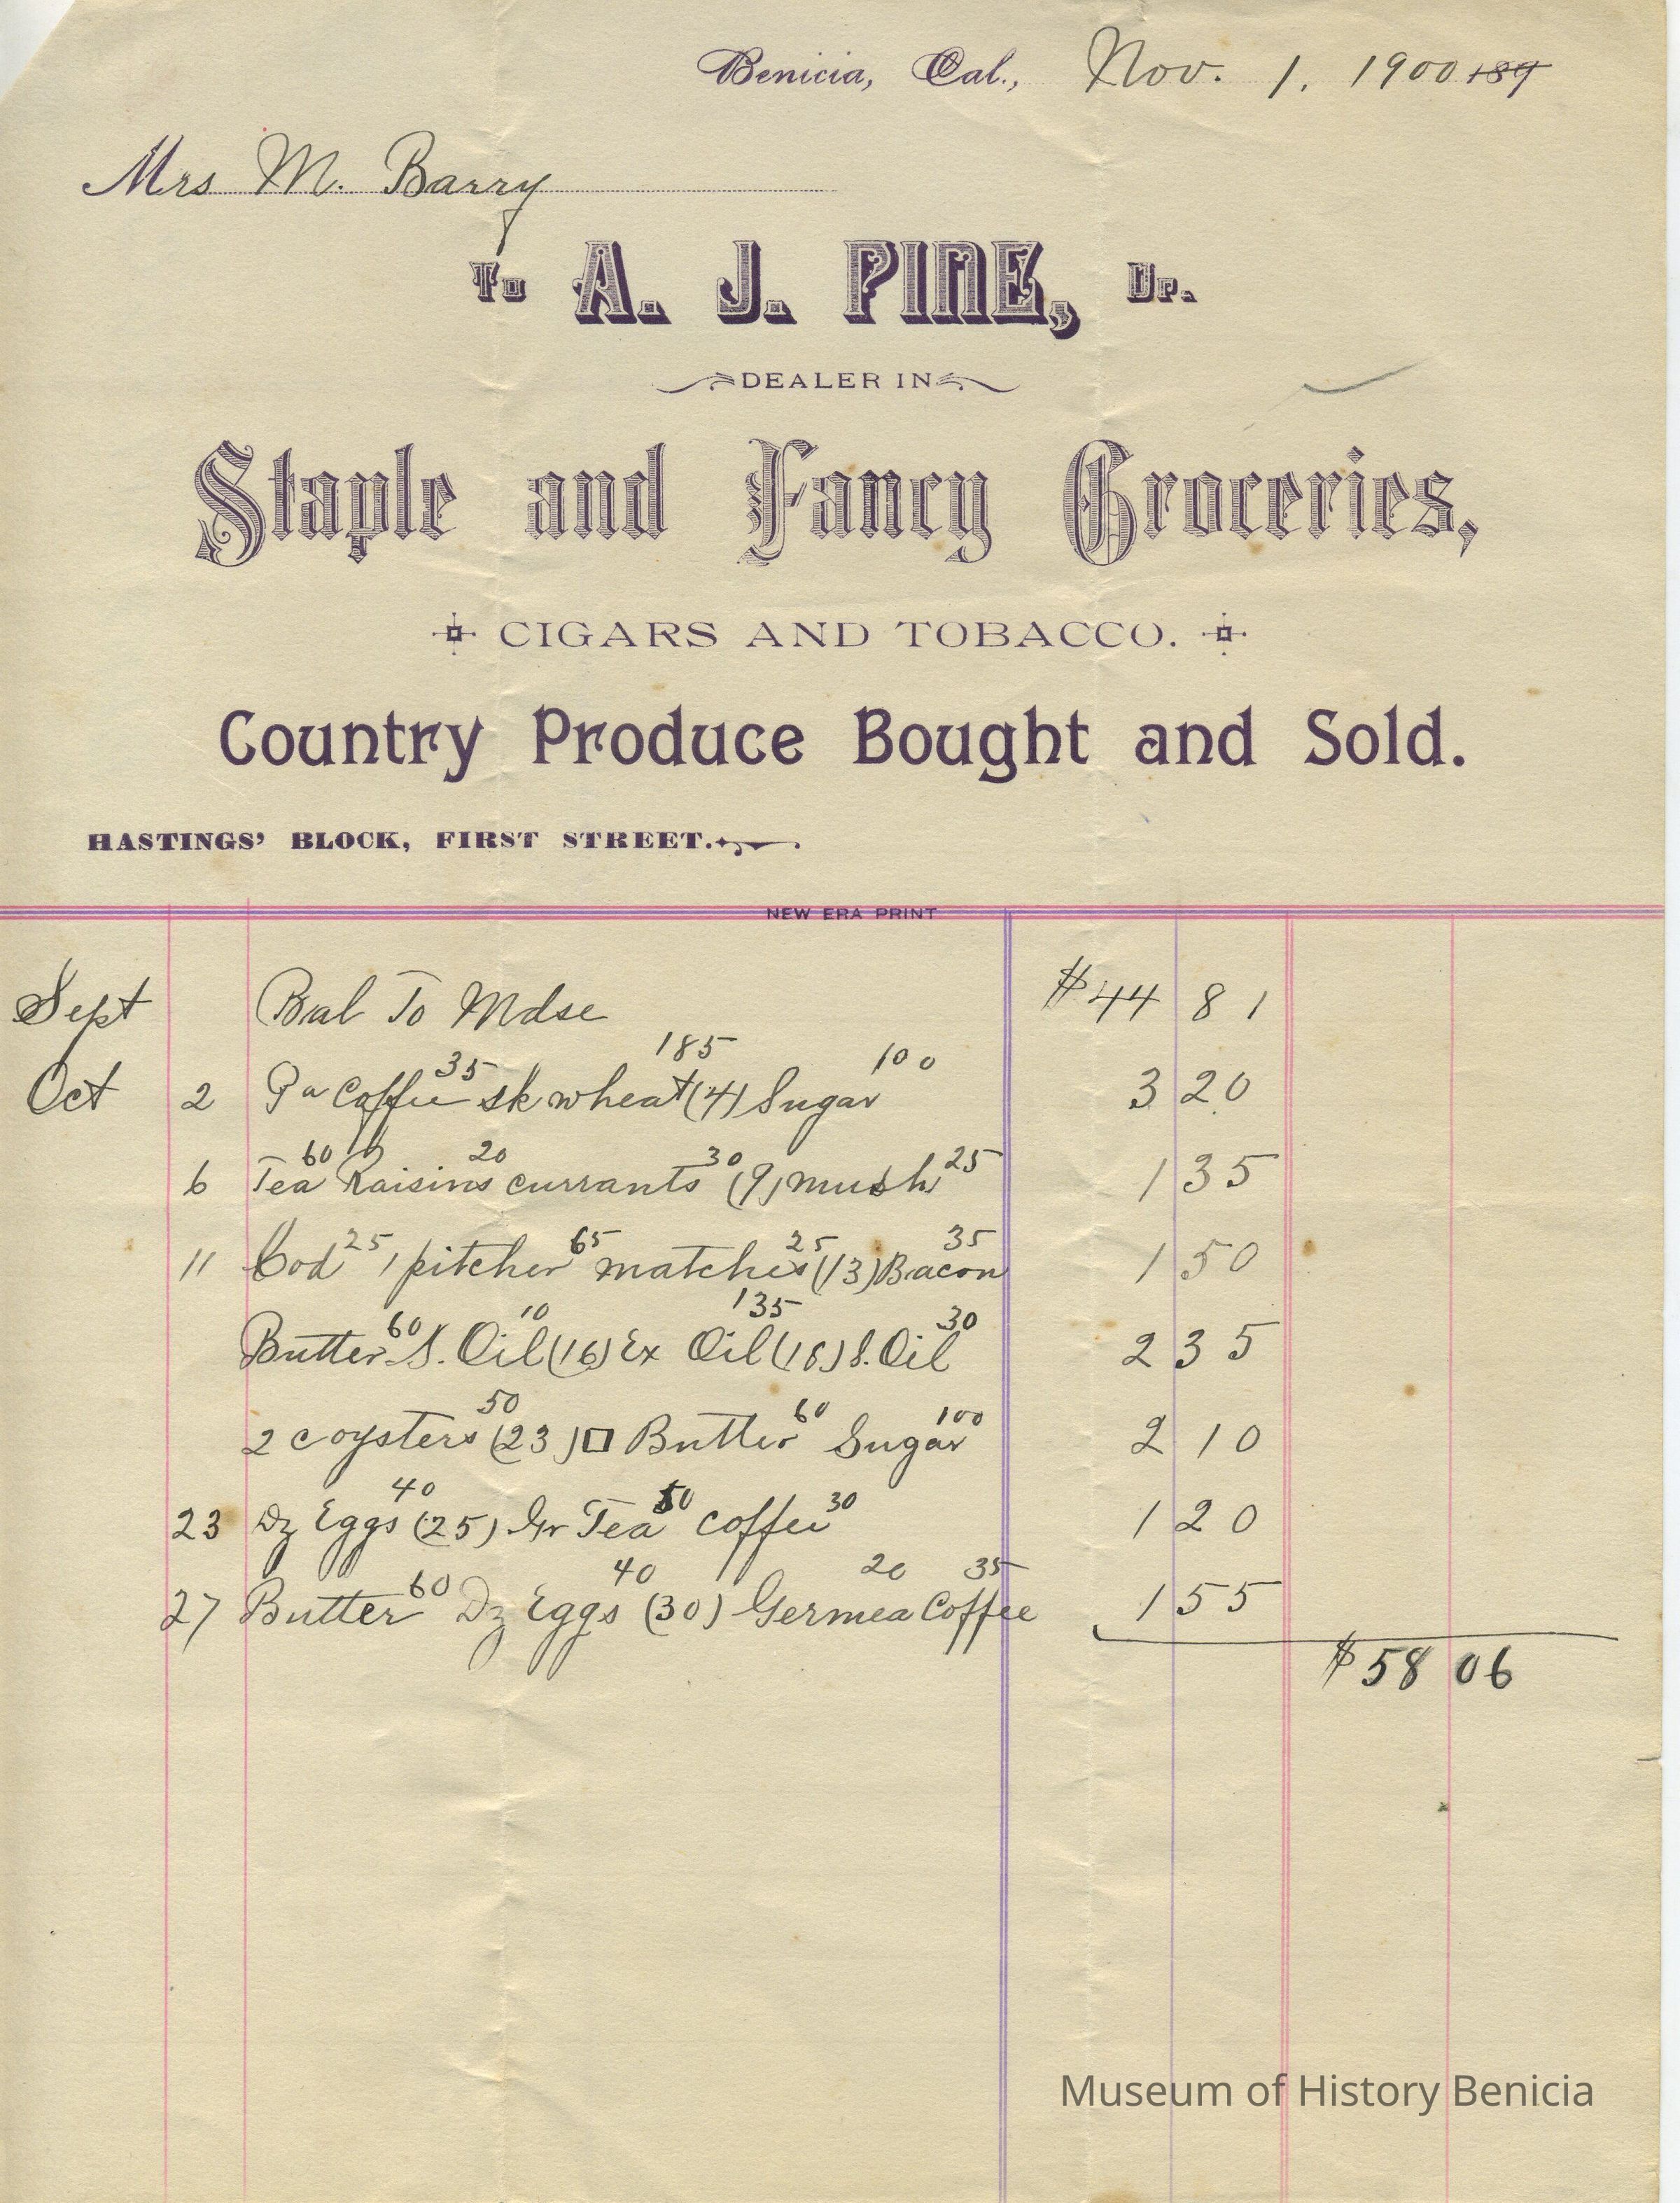 Benicia, Cal., Nov. 1. 1900 189
Mrs M. Barry
To A. J. PINE, Dr.
DEALER IN
Staple and Fancy Groceries,
CIGARS AND TOBACCO.
Country Produce Bought and Sold.
HASTINGS' BLOCK, FIRST STREET.
NEW ERA PRINT
Sept Bal To Mdse $44 81
Oct 2 Pa Coffee 35 sk wheat 185 (4) Sugar 100 3 20
6 Tea 60 Raisins 20 currants 30 (9) mush 25 1 35
11 Cod 25 1 pitcher 65 matches 25 (13) Bacon 35 1 50
Butter 60 S. Oil 10 (16) Ex Oil 135 (18) S. Oil 30 2 35
2 c oysters 50 (23) □ Butter 60 Sugar 100 2 10
23 Dz Eggs 40 (25) Gr Tea 50 coffee 30 1 20
27 Butter 60 Dz Eggs 40 (30) Germea 20 Coffee 35 1 55
$58 06
Museum of History Benicia